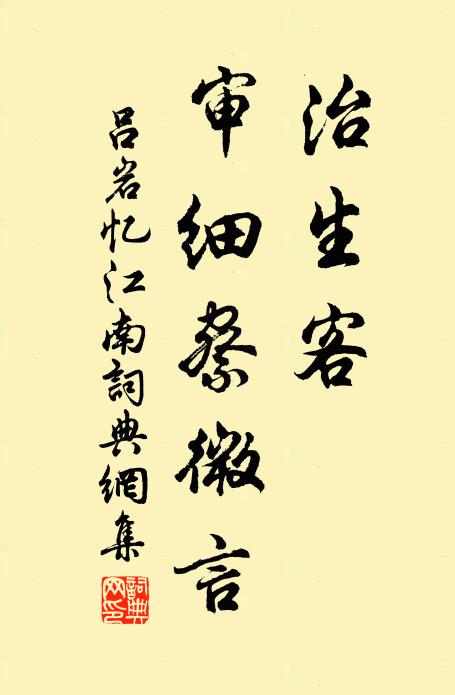 治生客
审细察微言
吕岩忆江南詞典網集
詞典网印